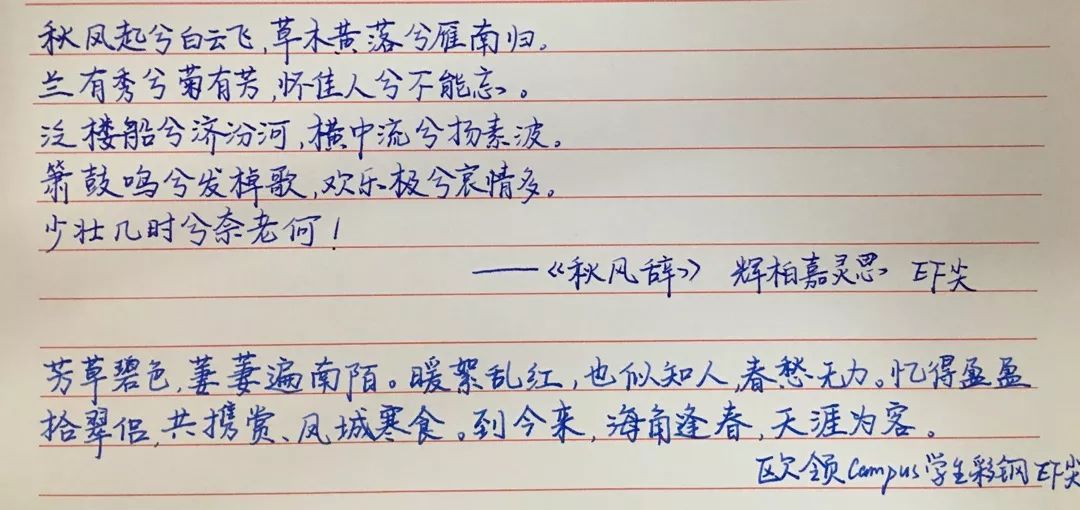 秋风起兮白云飞,草木黄落兮雁南归。
兰有秀兮菊有芳,怀佳人兮不能忘。
泛楼船兮济汾河,横中流兮扬素波。
箫鼓鸣兮发棹歌,欢乐极兮哀情多。
少壮几时兮奈老何!
——《秋风辞》 辉柏嘉灵思 EF尖
芳草碧色,萋萋遍南陌。暖絮乱红,也似知人,春愁无力。忆得盈盈
拾翠侣,共携赏、凤城寒食。到今来,海角逢春,天涯为客。
欧领Campus学生彩钢EF尖